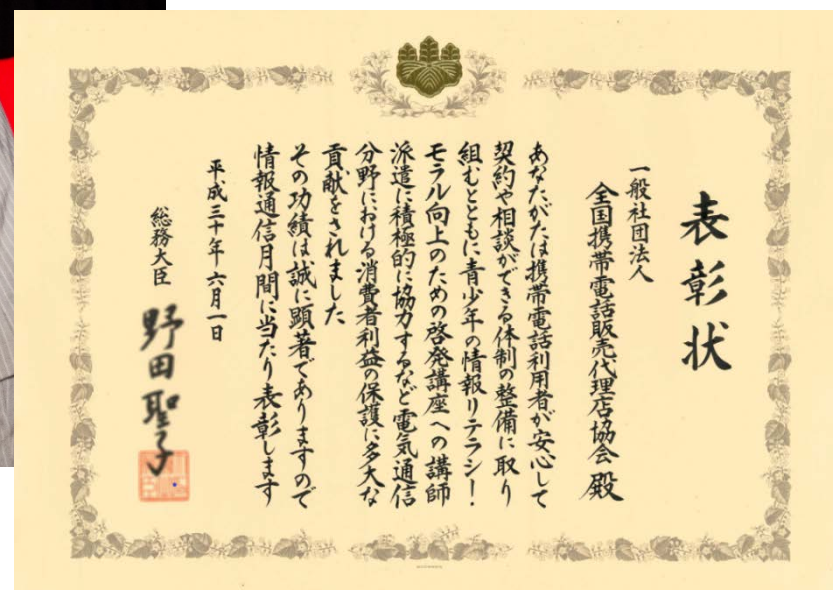 表彰状
一般社団法人
全国携帯電話販売代理店協会殿
あなたがたは携帯電話利用者が安心して
契約や相談ができる体制の整備に取り
組むとともに青少年の情報リテラシー・
モラル向上のための啓発講座への講師
派遣に積極的に協力するなど電気通信
分野における消費者利益の保護に多大な
貢献をされました
その功績は誠に顕著でありますので
情報通信月間に当たり表彰します
平成三十年六月一日
総務大臣
野田聖子